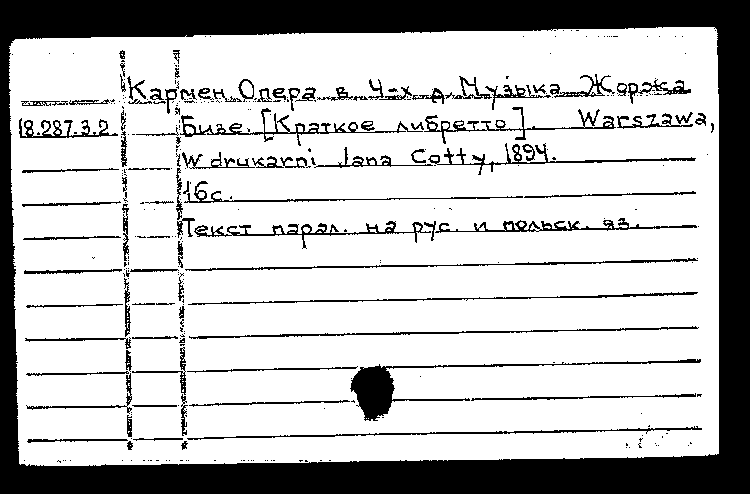 Кармен. Опера в 4-х д. Музыка Жоржа
18.287.3.2. Бизе. [Краткое либретто]. Warszawa,
W drukarni Jana Cotty, 1894.
16с.
Текст парал. на рус. и польск. яз.